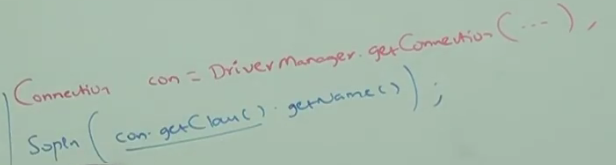 Connection con = DriverManager.getConnection(---),
Sopln(con.getClass().getName());